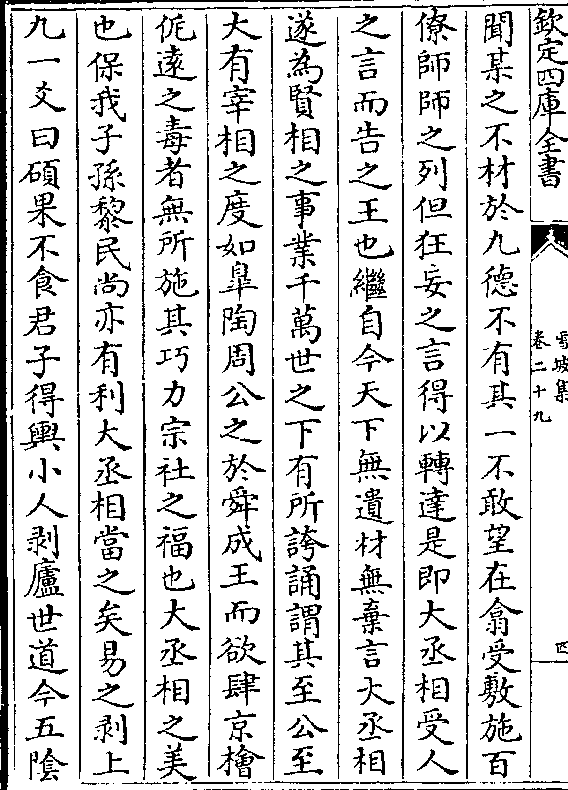 欽定四庫全書
雪坡集
卷二十九
四
聞某之不材於九德不有其一不敢望在翕受敷施百
僚師師之列但狂妄之言得以轉達是即大丞相受人
之言而告之王也繼自今天下無遺材無棄言大丞相
遂為賢相之事業千萬世之下有所誇誦謂其至公至
大有宰相之度如臯陶周公之於舜成王而欲肆京檜
侂遠之毒者無所施其巧力宗社之福也大丞相之美
也保我子孫黎民尚亦有利大丞相當之矣易之剥上
九一爻曰碩果不食君子得輿小人剥廬世道今五陰